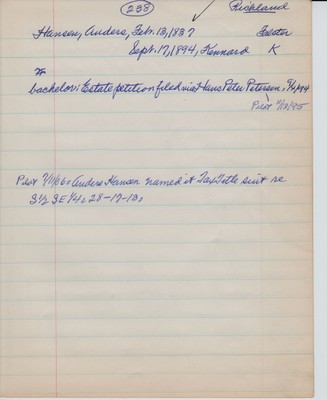 238
Richland
Hansen, Anders, Feb. 13, 1837
Sept. 17, 1894, Kennard K
bachelor: Estate petition filed via Hans Peter Petersen,
Pilot
Pilot Anders Hansen named in Tax Title suit re
S½ SE¼: 28-17-13: